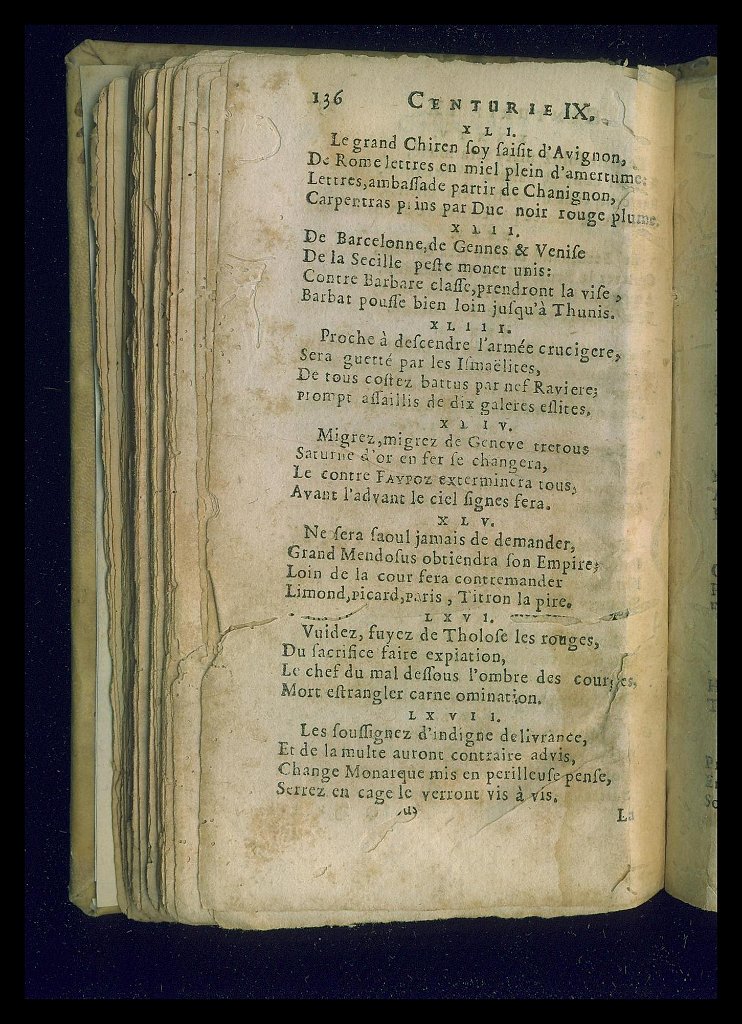 136 CENTURIE IX.
XLI.
Le grand Chiren ſoy ſaiſit d'Avignon,
De Rome lettres en miel plein d'amertume:
Lettres, ambaſſade partir de Chanignon,
Carpentras pins par Duc noir rouge plume.
XLII.
De Barcelonne, de Gennes & Veniſe
De la Secille peſte monet unis:
Contre Barbare claſſe, prendront la viſe,
Barbat pouſſe bien loin juſqu'à Thunis.
XLIII.
Proche à deſcendre l'armée crucigere,
Sera guetté par les Iſmaëlites,
De tous coſtez battus par nef Raviere;
Prompt aſſaillis de dix galeres eſlites.
XLIV.
Migrez, migrez de Geneve tretous
Saturne d'or en fer ſe changera,
Le contre FAYPOZ exterminera tous,
Avant l'advant le ciel ſignes fera.
XLV.
Ne ſera ſaoul jamais de demander,
Grand Mendoſus obtiendra ſon Empire;
Loin de la cour fera contremander
Limond, picard, paris, Titron la pire.
LXVI.
Vuidez, fuyez de Tholoſe les rouges,
Du ſacrifice faire expiation,
Le chef du mal deſſous l'ombre des courges,
Mort eſtrangler carne omination.
LXVII.
Les ſouſſignez d'indigne delivrance,
Et de la multe auront contraire advis,
Change Monarque mis en perilleuſe penſe,
Serrez en cage le verront vis à vis.
La